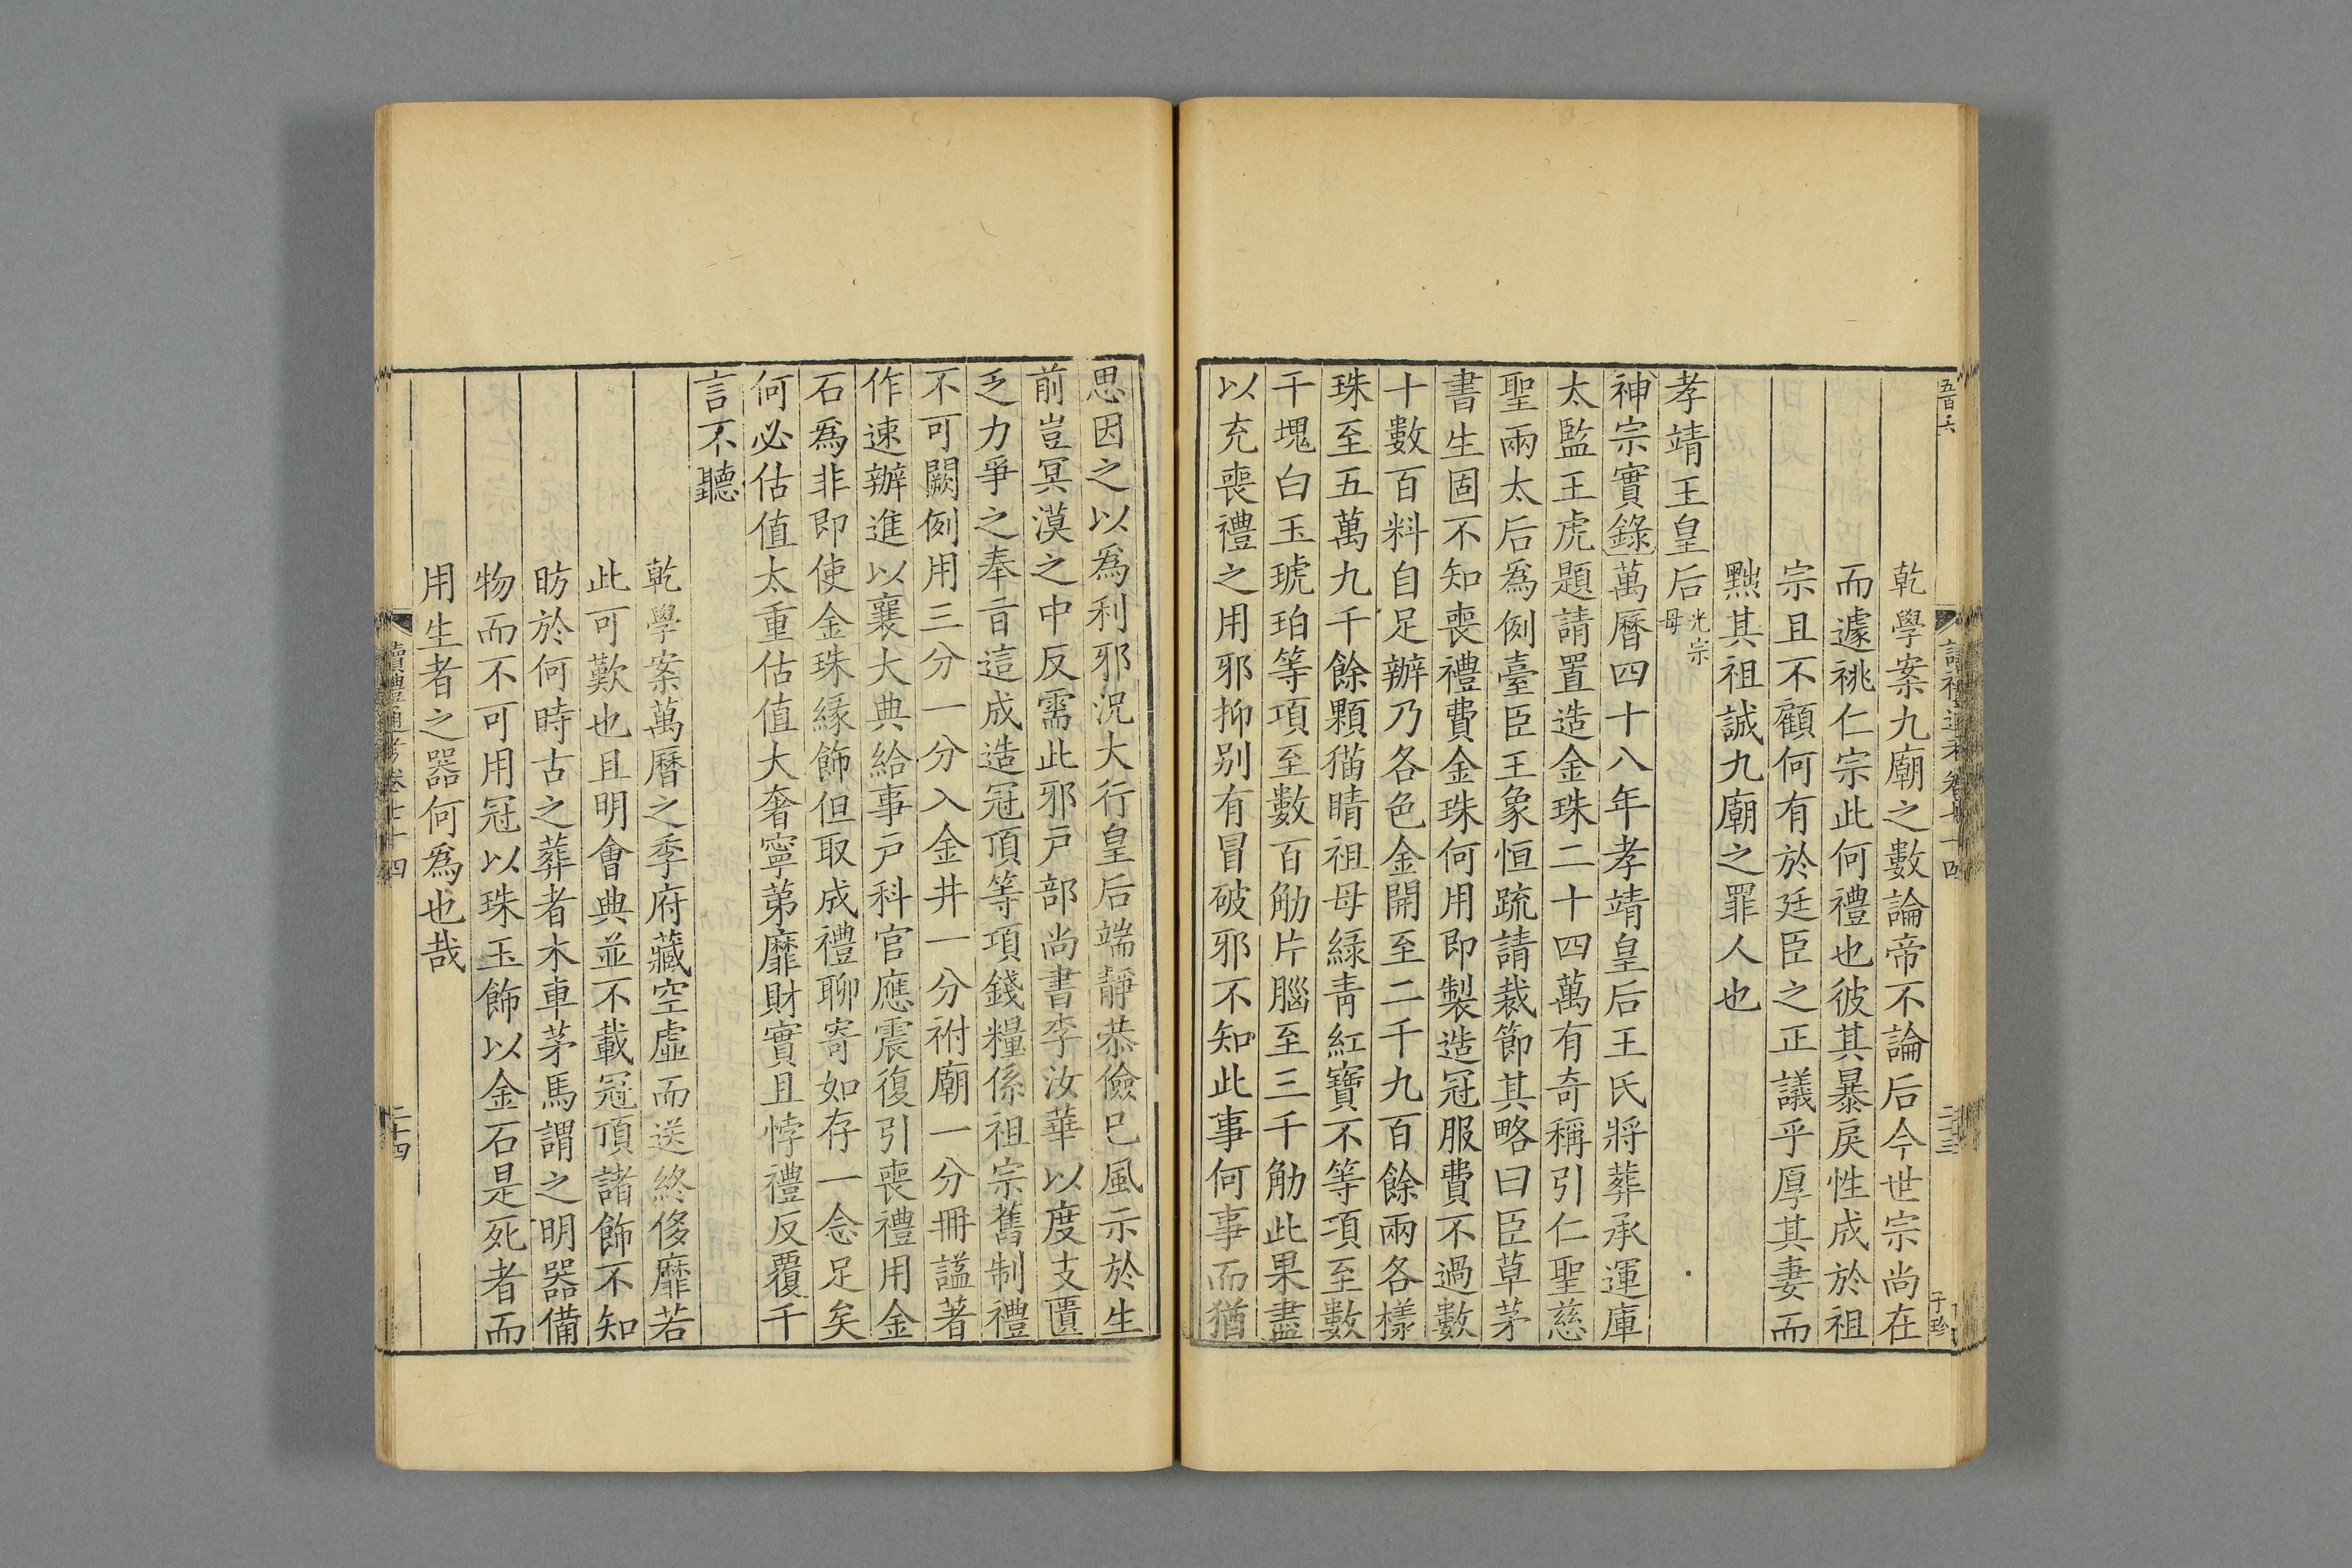 五百六
讀禮通考卷七十四
二十三
子珍
乾學案九廟之數論帝不論后今世宗尚在
而遽祧仁宗此何禮也彼其暴戾性成於祖
宗且不顧何有於廷臣之正議乎厚其妻而
黜其祖誠九廟之罪人也
孝靖王皇后光宗母
神宗實錄萬曆四十八年孝靖皇后王氏將葬承運庫
太監王虎題請置造金珠二十四萬有奇稱引仁聖慈
聖兩太后爲例臺臣王象恒疏請裁節其略曰臣草茅
書生固不知喪禮費金珠何用即製造冠服費不過數
十數百料自足辦乃各色金開至二千九百餘兩各樣
珠至五萬九千餘顆猫睛祖母緑青紅寶不等項至數
千塊白玉琥珀等項至數百觔片腦至三千觔此果盡
以充喪禮之用邪抑别有冒破邪不知此事何事而猶
思因之以爲利邪況大行皇后端靜恭儉已風示於生
前豈冥漠之中反需此邪戸部尚書李汝華以度支匱
乏力爭之奉旨這成造冠頂等項錢糧係祖宗舊制禮
不可闕例用三分一分入金井一分祔廟一分冊謚著
作速辦進以襄大典給事戸科官應震復引喪禮用金
石爲非即使金珠緣飾但取成禮聊寄如存一念足矣
何必估值太重估值大奢寧第靡財實且悖禮反覆千
言不聽
乾學案萬曆之季府藏空虛而送終侈靡若
此可歎也且明會典並不載冠頂諸飾不知
昉於何時古之葬者木車茅馬謂之明器備
物而不可用冠以珠玉飾以金石是死者而
用生者之器何爲也哉
讀禮通考卷七十四
二十四